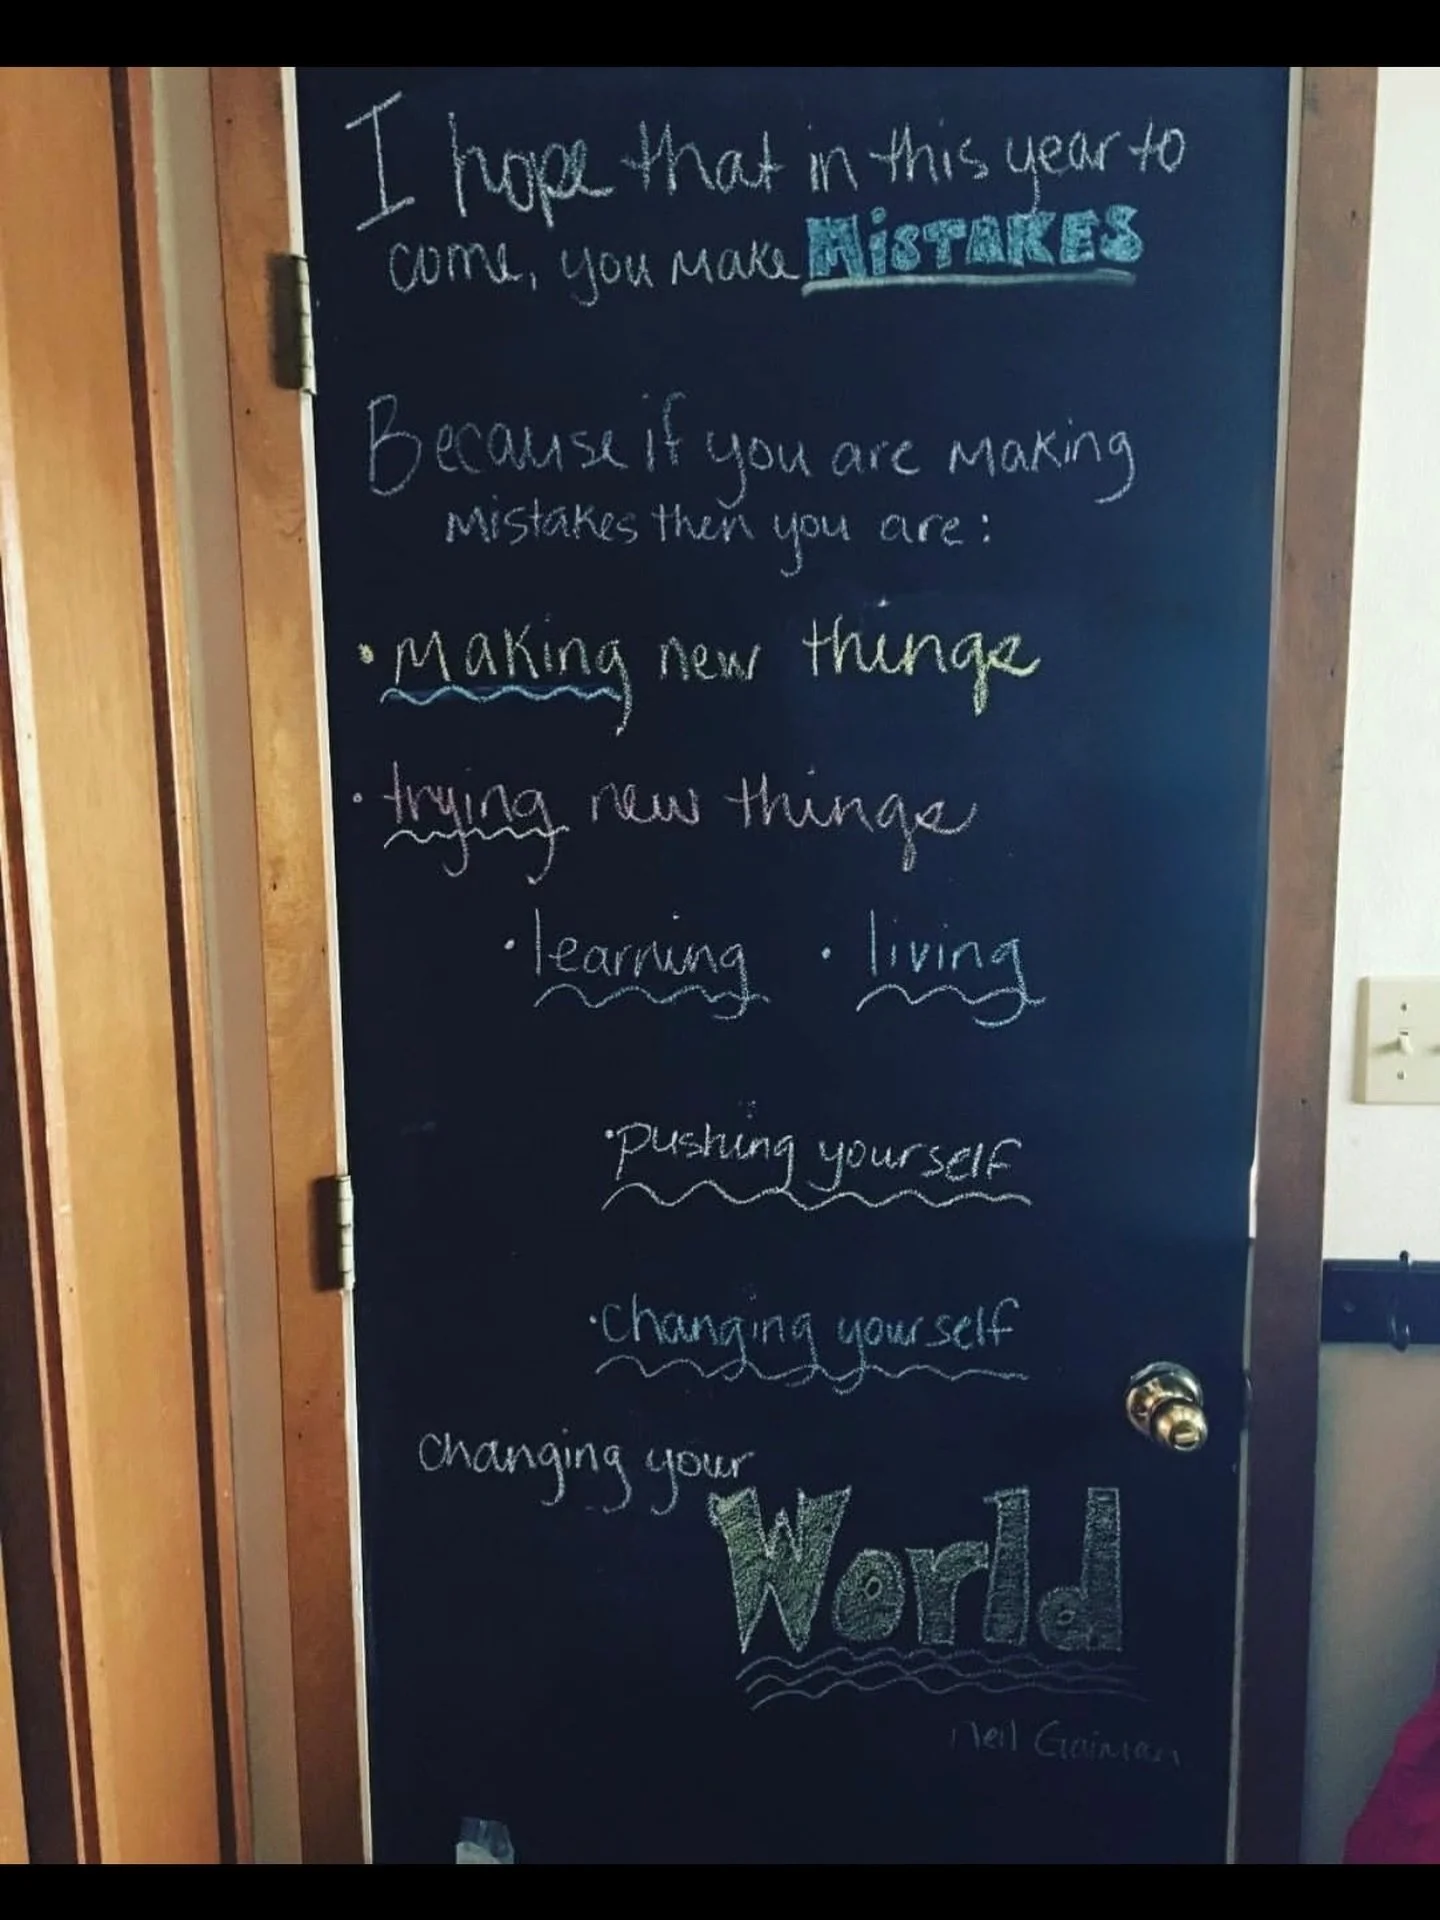 I hope that in this year to
come, you make MiSTAKES
Because if you are making
mistakes then you are:
• Making new things
• trying new things
• learning • living
• pushing yourself
• changing yourself
changing your
World
Neil Gaiman